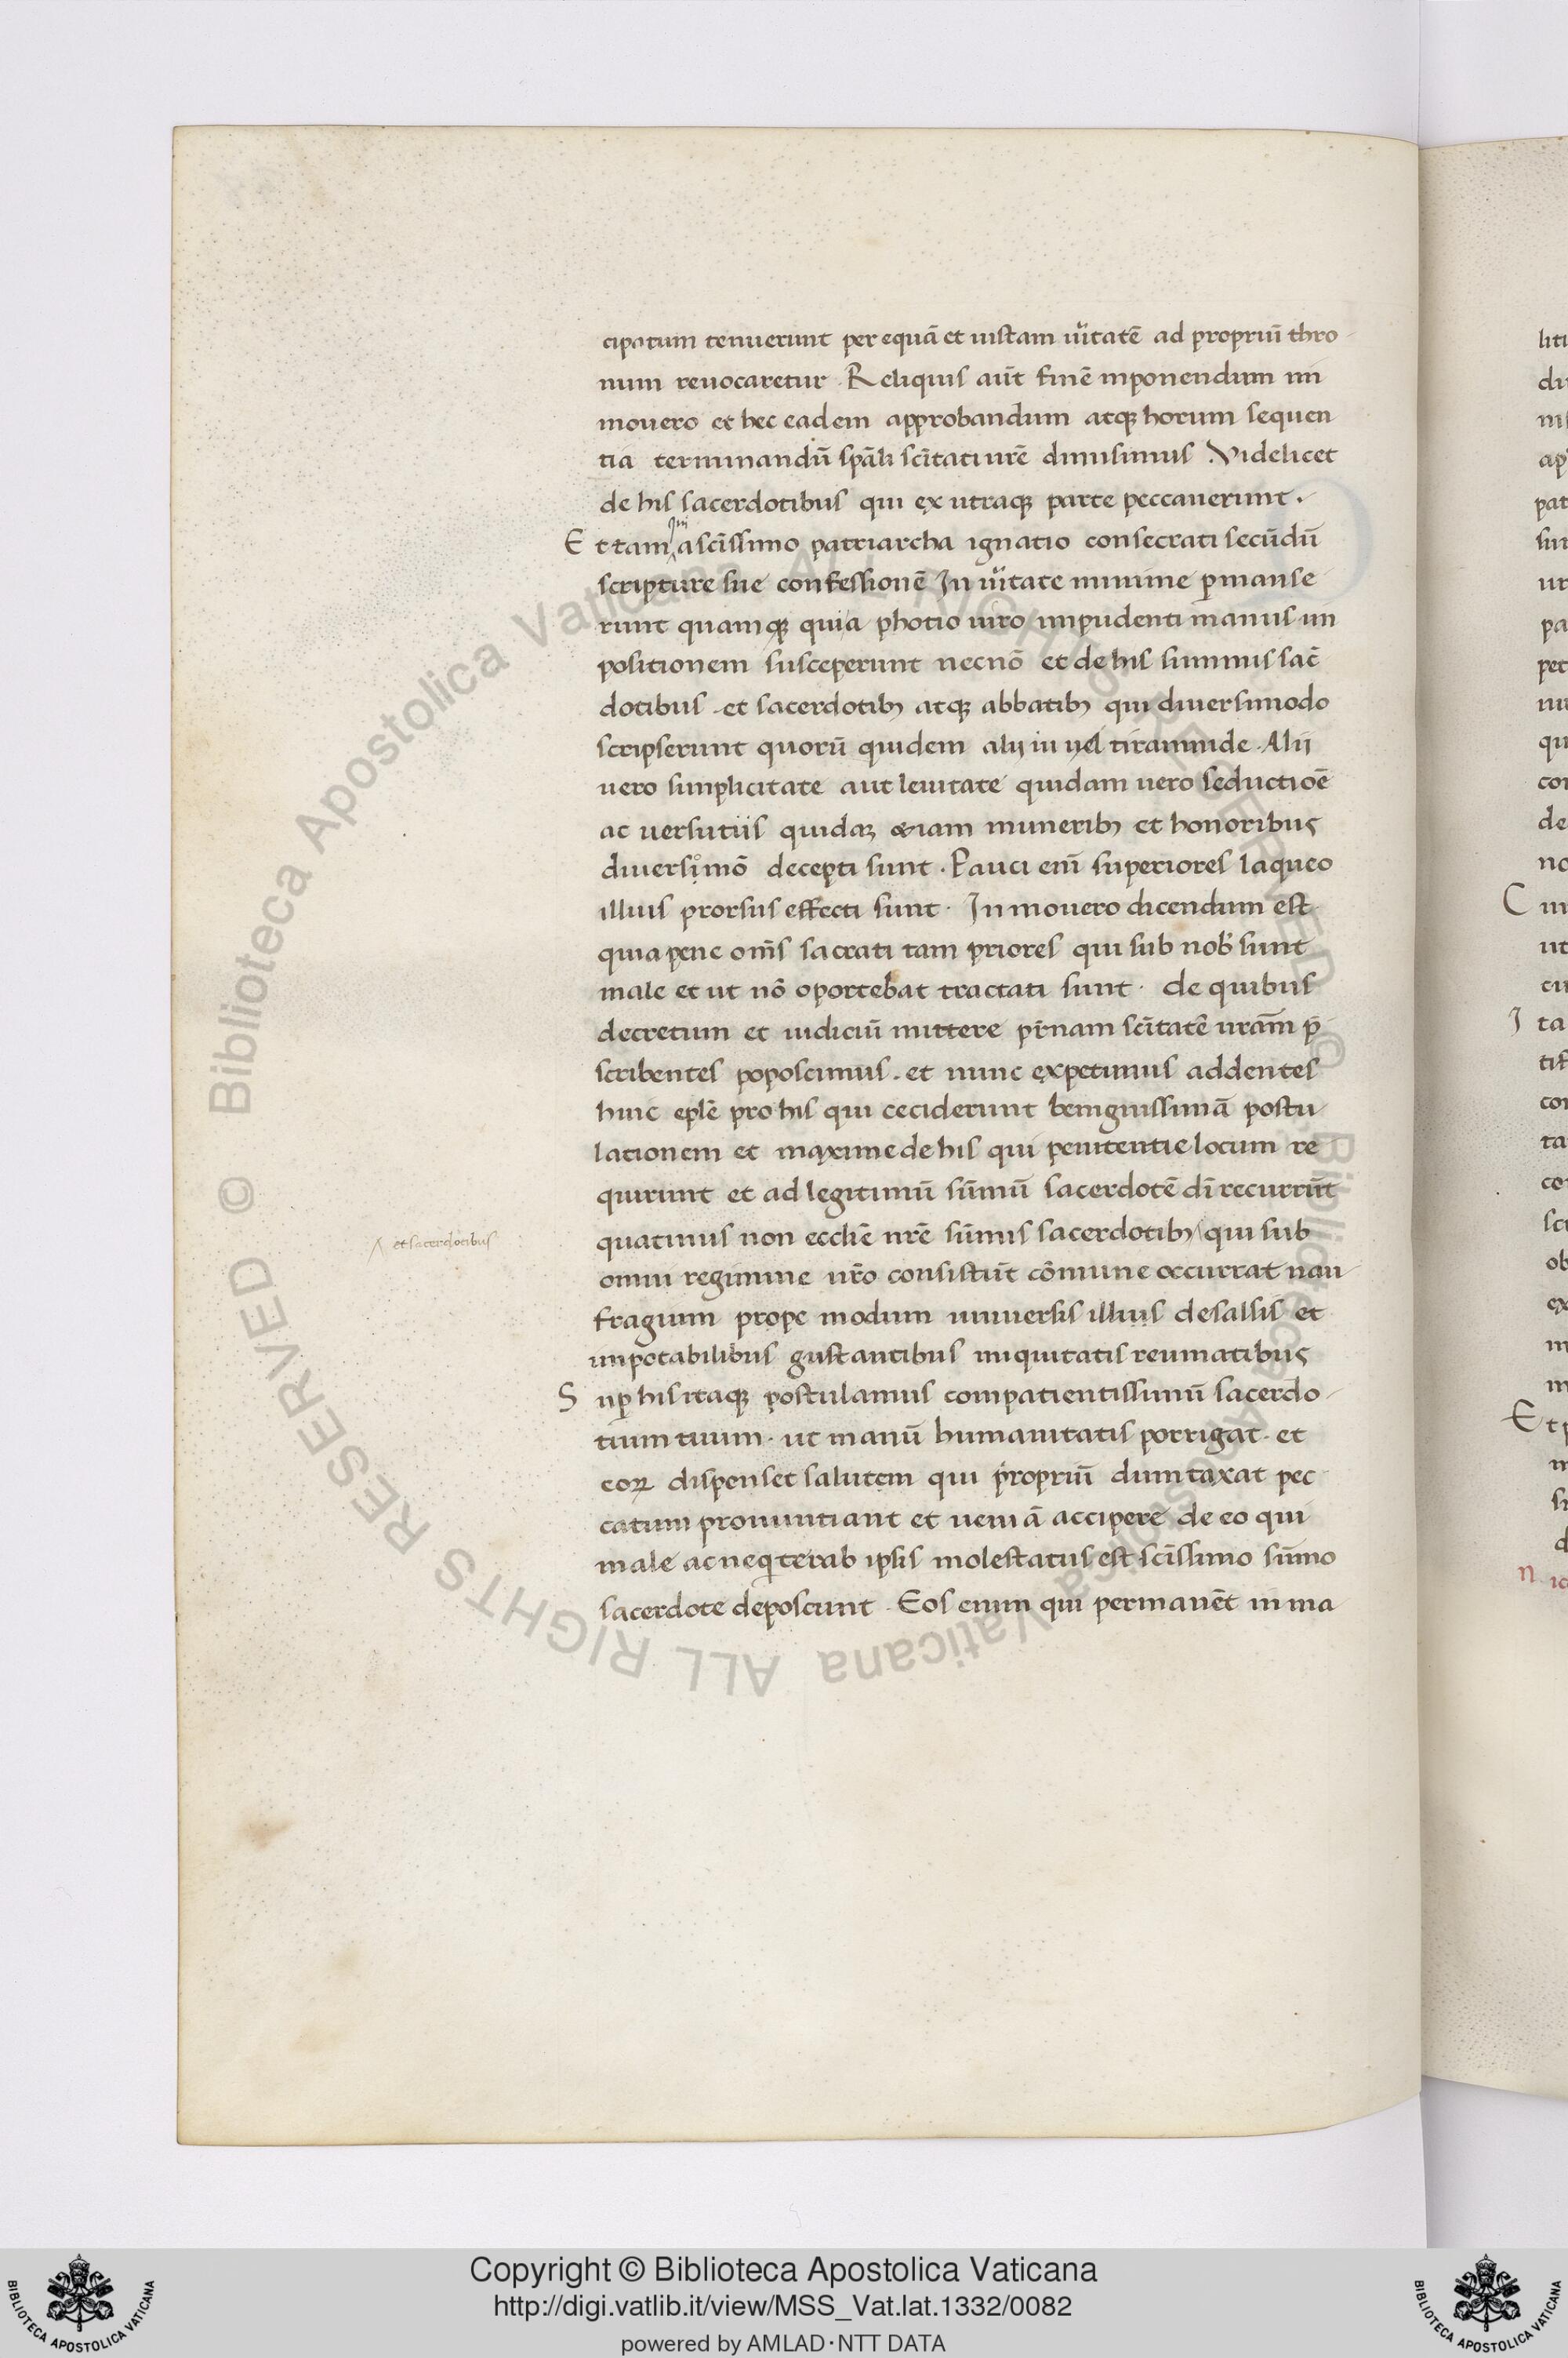 cipatum tenuerunt per equā et iustam ur̄itatē ad propriū thro
num reuocaretur. Reliquis aut̄ finē inponendum nn̄
mouero et hec eadem approbandum atqꝫ horum sequen
tia terminandū sp̄ali sc̄itati ur̄e dimisimus. Videlicet
de his sacerdotibus qui ex utraqꝫ parte peccauerunt.
Et tam qui a sc̄issimo patriarcha ignatio consecrati secūdū
scripture sue confessionē In ur̄itate minime ꝑmanse
runt quamqꝫ quia photio uiro impudenti manus im
positionem susceperunt necnō et de his summis sac̄
dotibus. et sacerdotibꝫ atqꝫ abbatibꝫ qui diuersimodo
scripserunt quorū quidem alij ui uel tirannide. Alij
uero simplicitate aut leuitate quidam uero seductiōe
ac uersutiis quidaꝫ etiam muneribꝫ et honoribus
diuersimō decepti sunt. Pauci eni̅ superiores laqueo
illius prorsus effecti sunt. Inmouero dicendum est
quia pene om̄s sacrati tam priores qui sub nob̄ sunt
male et ut nō oportebat tractati sunt. de quibus
decretum et iudiciū mittere pr̄nam sc̄itatē uram̄ p̄
scribentes poposcimus. et nunc expetimus addentes
huic epl̄e pro his qui ceciderunt benignissimā postu
lationem et maxime de his qui penitentie locum re
quirunt et ad legitimū sūmū sacerdotē dī recurrūt
quatinus non eccl̄ie nr̄e sūmis sacerdotibꝫ qui sub
⁁ et sacerdotibus
omni regimine nr̄o consistūt cōmune occurrat nau
fragium prope modum uniuersis illius desalsis et
inpotabilibus gustantibus iniquitatis reumatibus
Suꝑ his itaqꝫ postulamus compatientissimū sacerdo
tium tuum. ut manū humanitatis porrigat. et
eoꝝ dispenset salutem qui propriū dumtaxat pec
catum pronuntiant et ueniā accipere de eo qui
male ac neqter ab ipsis molestatus est sc̄issimo sūmo
sacerdote deposcunt. Eos enim qui permanēt in ma
Copyright © Biblioteca Apostolica Vaticana
http://digi.vatlib.it/view/MSS_Vat.lat.1332/0082
powered by AMLAD·NTT DATA
BIBLIOTECA APOSTOLICA VATICANA
BIBLIOTECA APOSTOLICA VATICANA
© Biblioteca Apostolica Vaticana ALL RIGHTS RESERVED
© Biblioteca Apostolica Vaticana ALL RIGHTS RESERVED